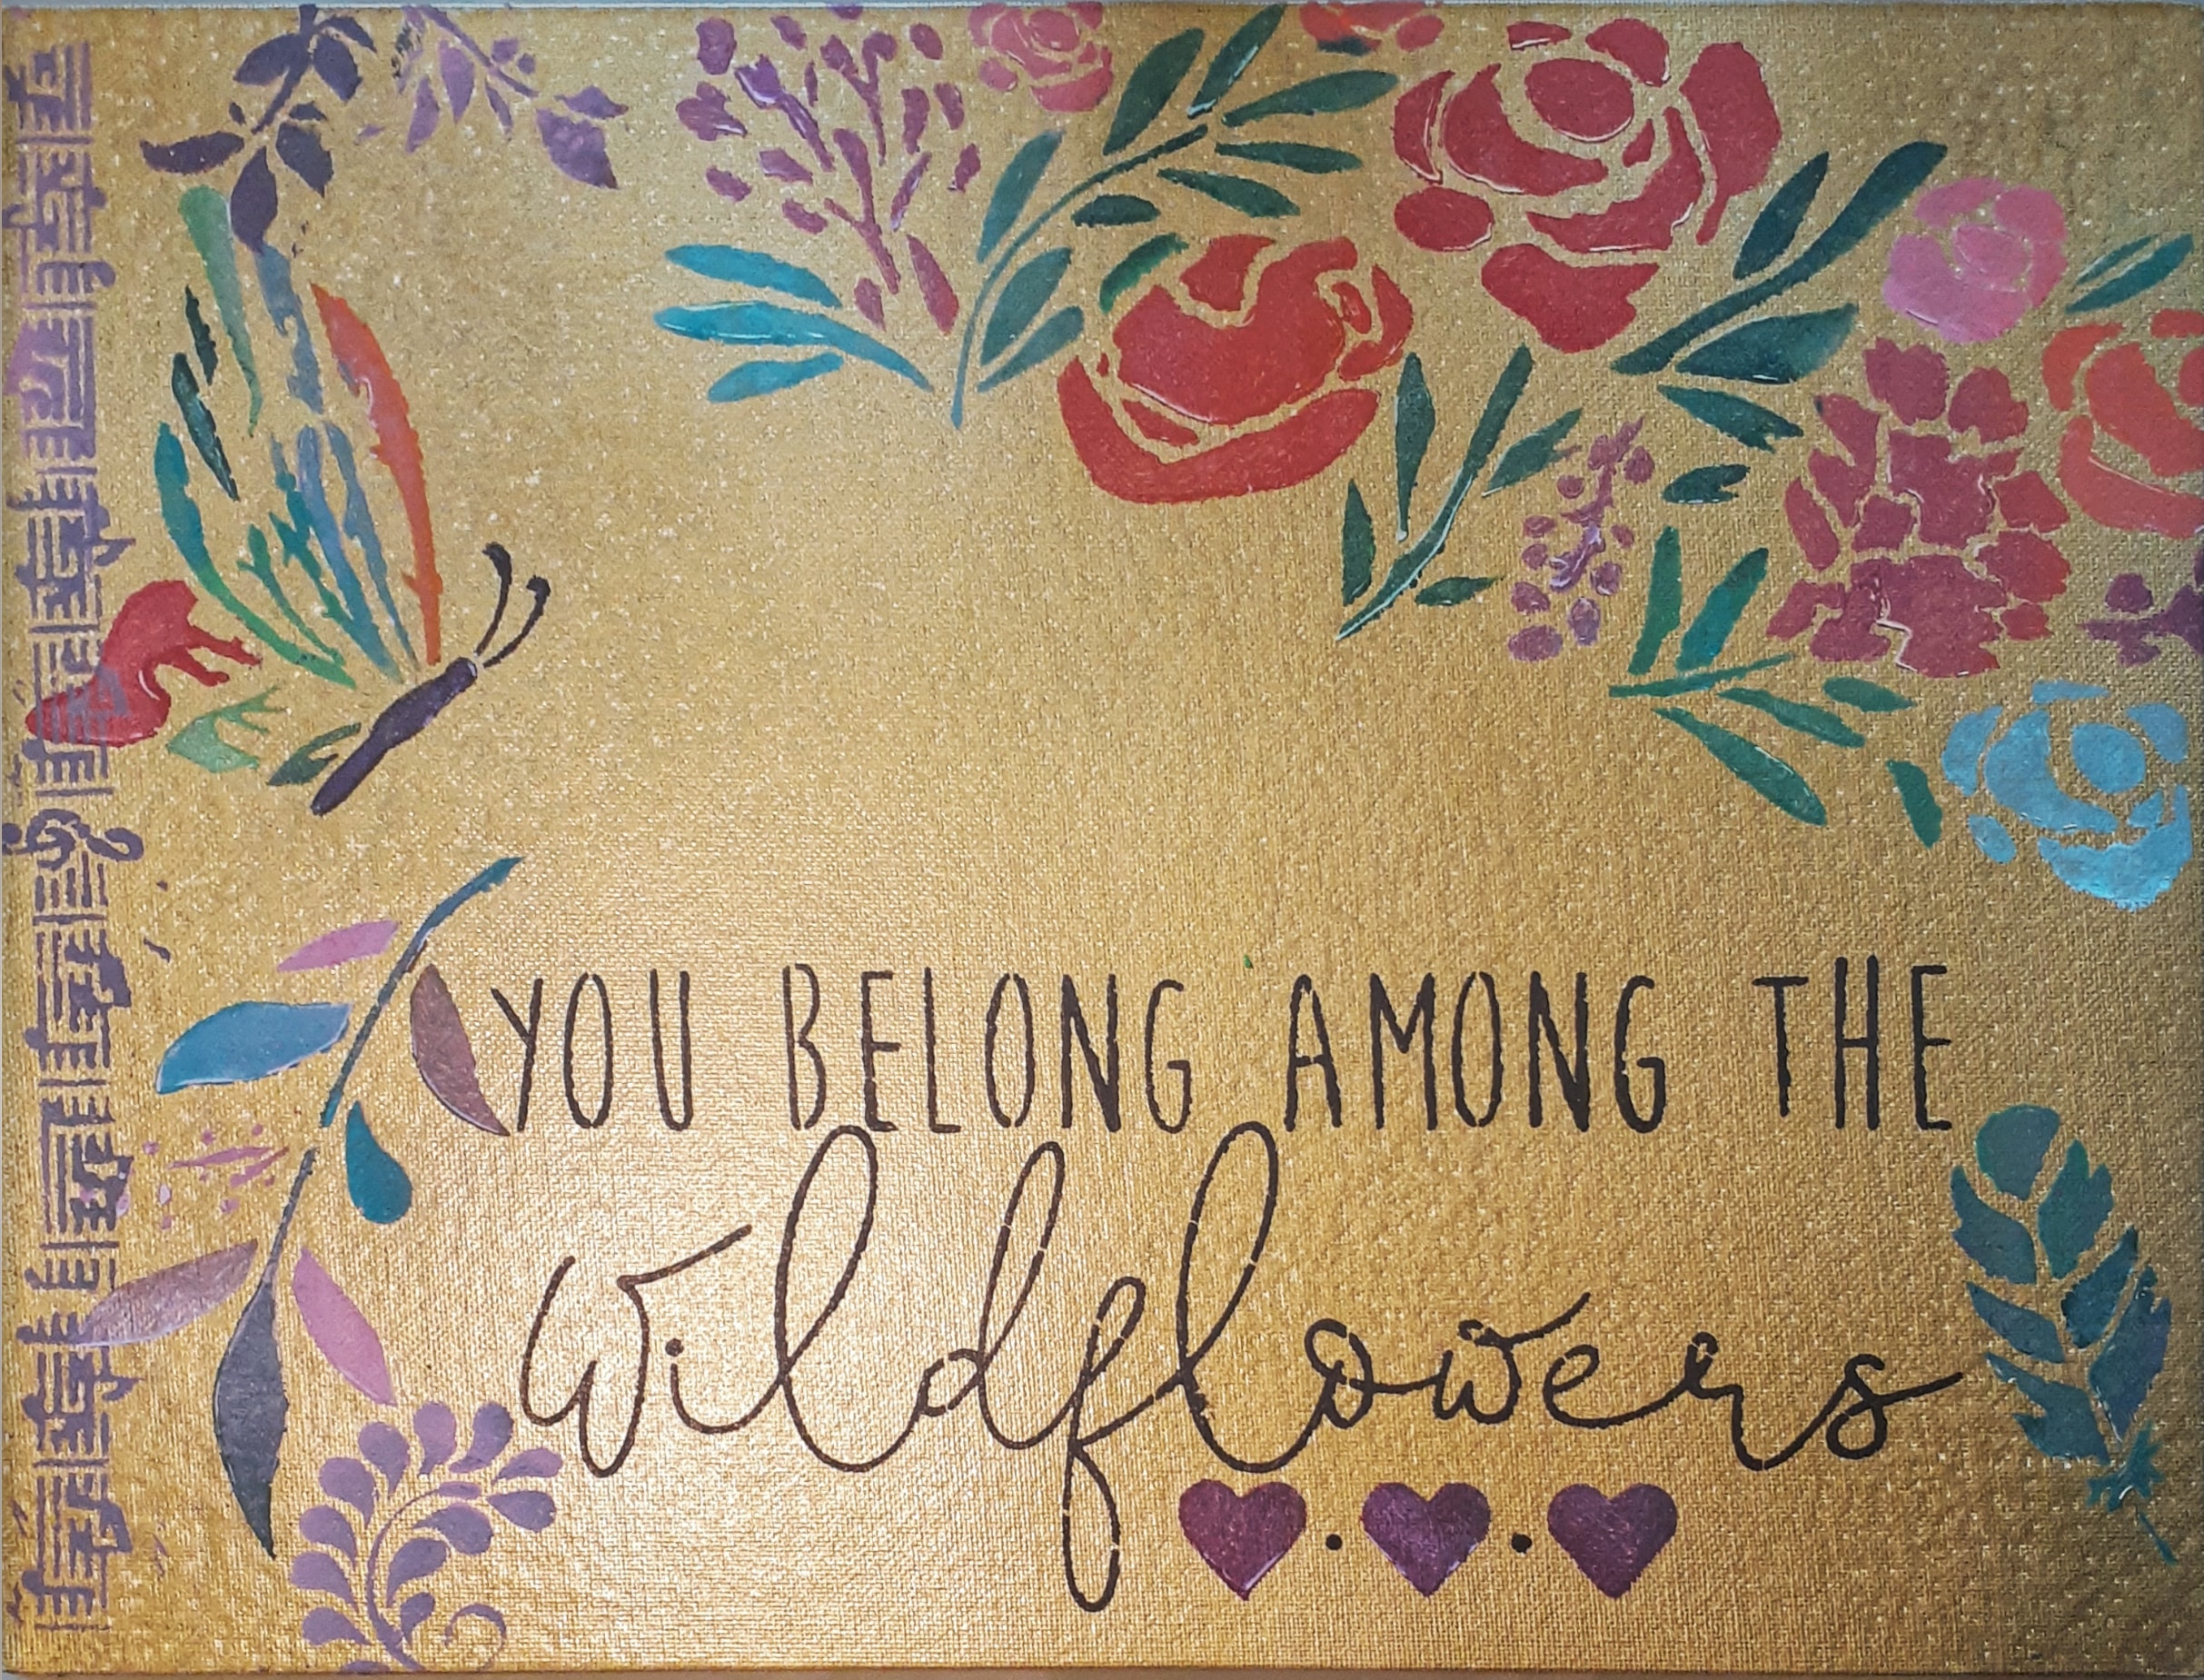 YOU BELONG AMONG THE
wildflowers